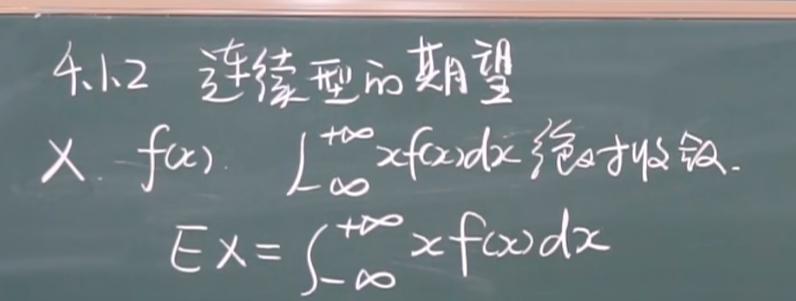 4.1.2 连续型的期望
X. f(x). ∫_{-∞}^{+∞} xf(x)dx 绝对收敛.
EX = ∫_{-∞}^{+∞} xf(x)dx